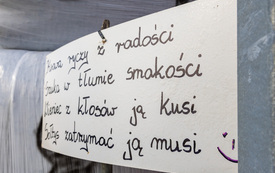 ryczy z radości
w tłumie smakości
z kłosów ją kusi
Sołtys zatrzymać ją musi